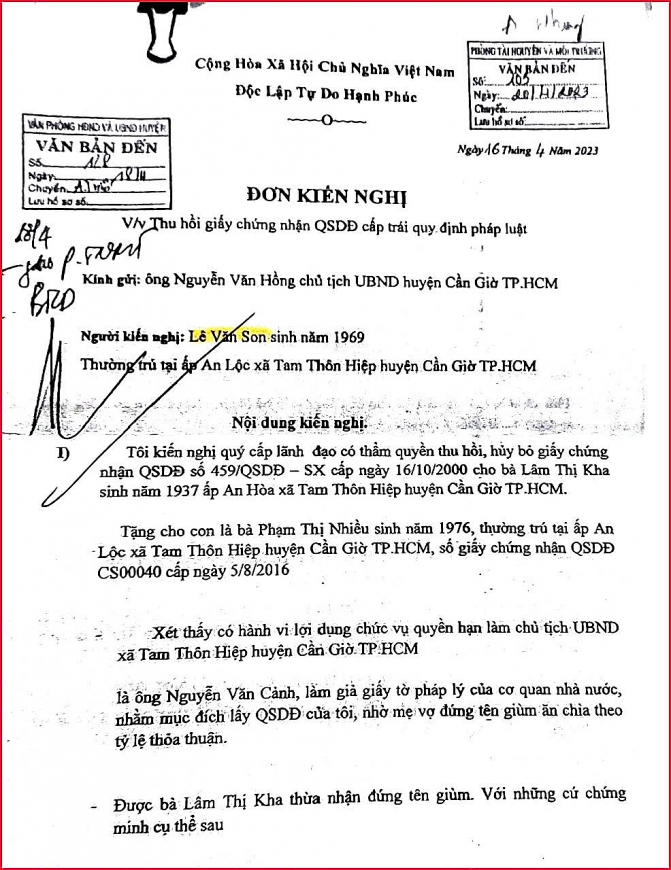 Cộng Hòa Xã Hội Chủ Nghĩa Việt Nam
Độc Lập Tự Do Hạnh Phúc
PHÒNG TÀI NGUYÊN VÀ MÔI TRƯỜNG
VĂN BẢN ĐẾN
Số: 105
Ngày: 20/4/2023
Chuyển:
Lưu hồ sơ số:
VĂN PHÒNG HĐND VÀ UBND HUYỆN
VĂN BẢN ĐẾN
Số
Ngày 18/4
Chuyển
Lưu hồ sơ số
Ngày 16 Tháng 4 Năm 2023
ĐƠN KIẾN NGHỊ
V/v Thu hồi giấy chứng nhận QSDĐ cấp trái quy định pháp luật
18/4
Kính gửi: ông Nguyễn Văn Hồng chủ tịch UBND huyện Cần Giờ TP.HCM
Người kiến nghị: Lê Văn Son sinh năm 1969
Thường trú tại ấp An Lộc xã Tam Thôn Hiệp huyện Cần Giờ TP.HCM
Nội dung kiến nghị.
I) Tôi kiến nghị quý cấp lãnh đạo có thẩm quyền thu hồi, hủy bỏ giấy chứng
nhận QSDĐ số 459/QSDĐ – SX cấp ngày 16/10/2000 cho bà Lâm Thị Kha
sinh năm 1937 ấp An Hòa xã Tam Thôn Hiệp huyện Cần Giờ TP.HCM.
Tặng cho con là bà Phạm Thị Nhiều sinh năm 1976, thường trú tại ấp An
Lộc xã Tam Thôn Hiệp huyện Cần Giờ TP.HCM, số giấy chứng nhận QSDĐ
CS00040 cấp ngày 5/8/2016
- Xét thấy có hành vi lợi dụng chức vụ quyền hạn làm chủ tịch UBND
xã Tam Thôn Hiệp huyện Cần Giờ TP.HCM
là ông Nguyễn Văn Cảnh, làm giả giấy tờ pháp lý của cơ quan nhà nước,
nhằm mục đích lấy QSDĐ của tôi, nhờ mẹ vợ đứng tên giùm ăn chia theo
tỷ lệ thỏa thuận.
- Được bà Lâm Thị Kha thừa nhận đứng tên giùm. Với những cứ chứng
minh cụ thể sau